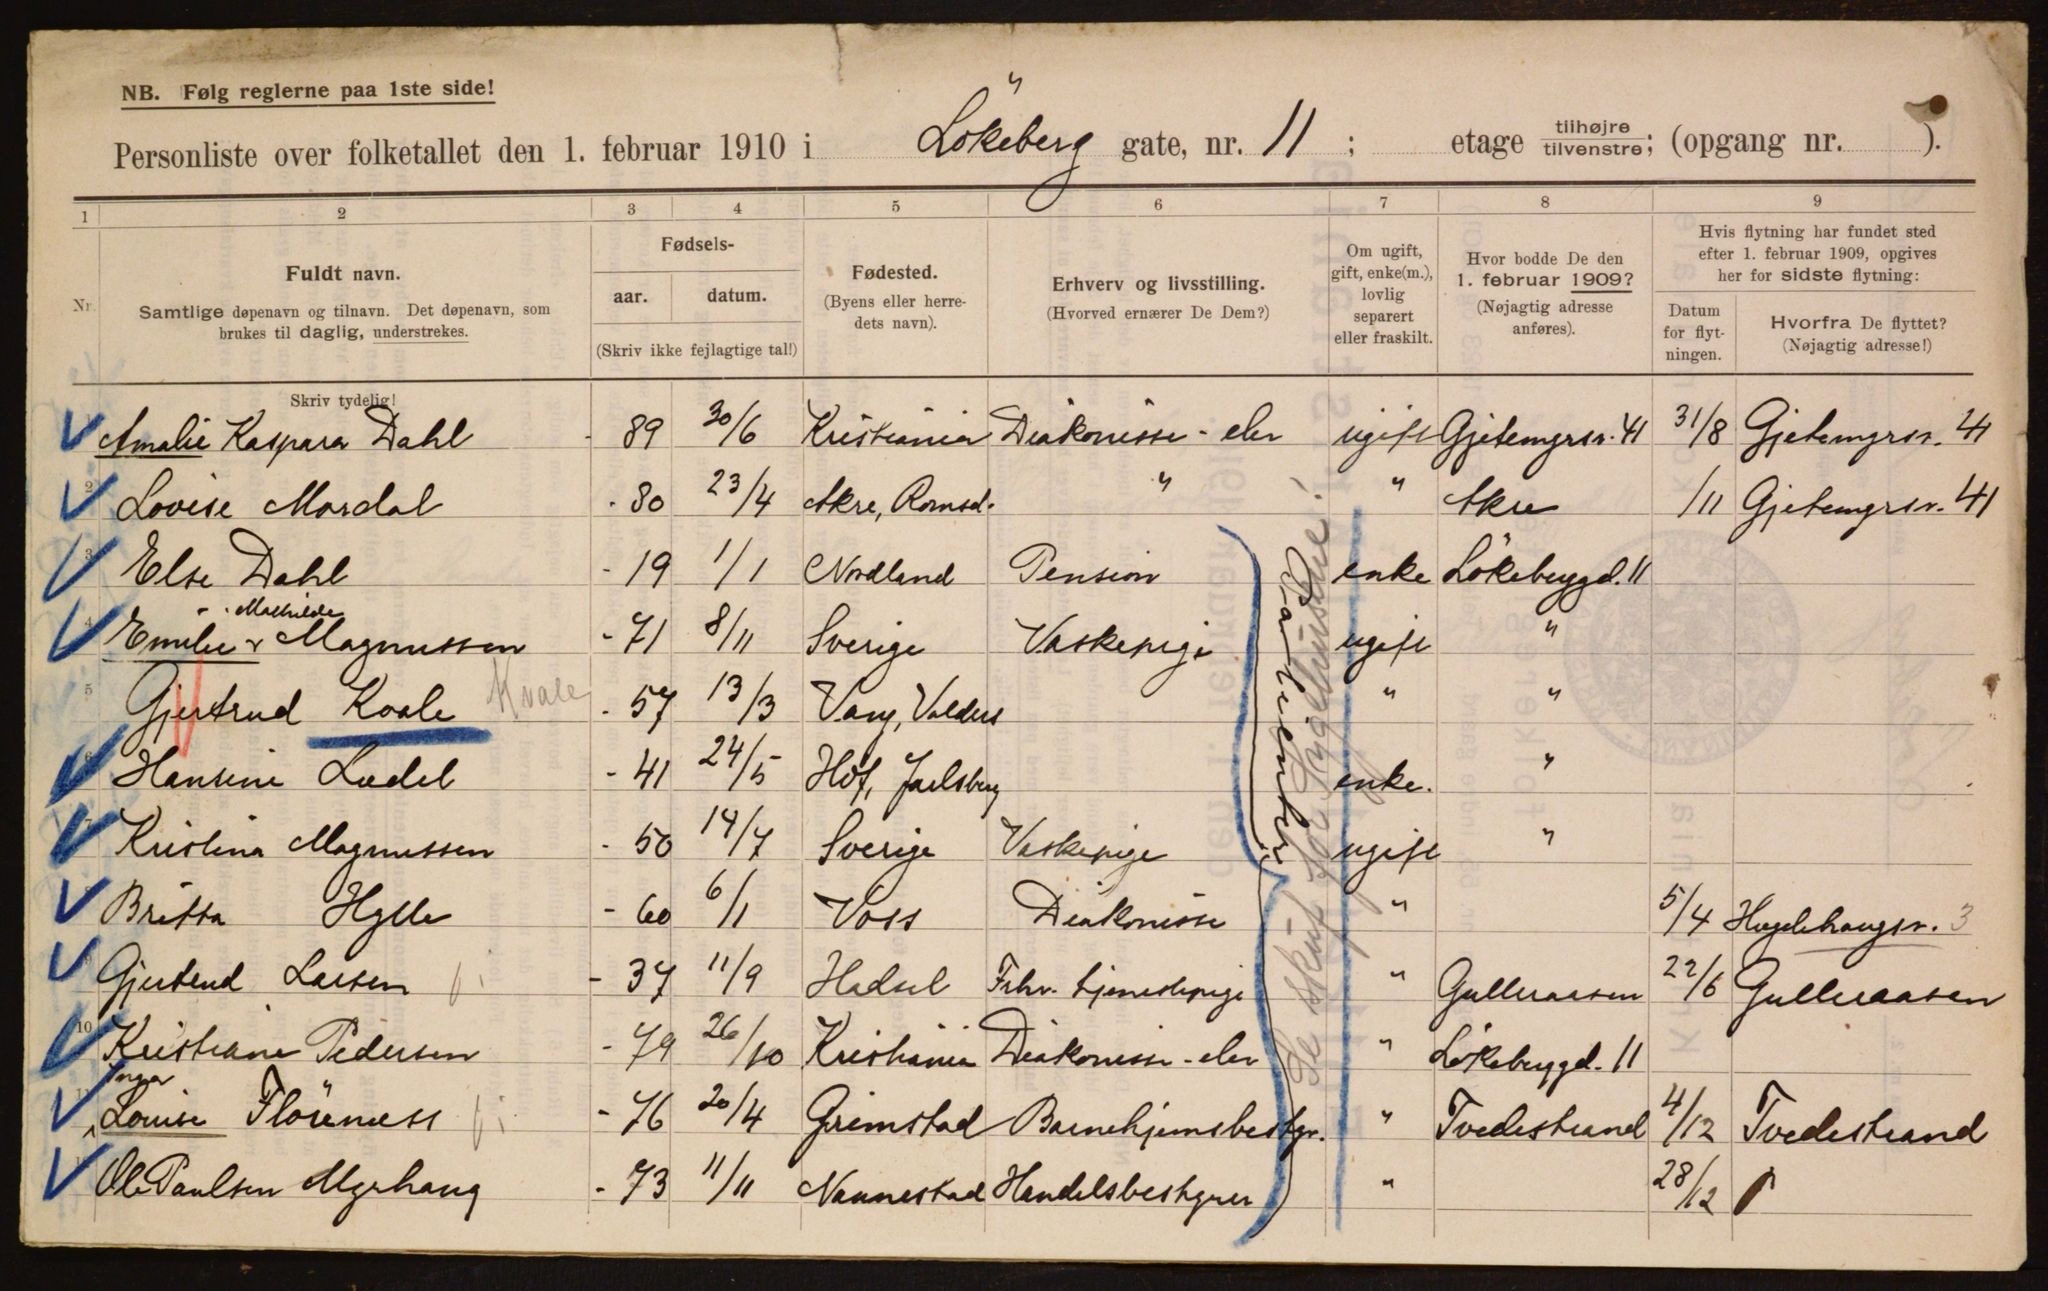 NB. Følg reglerne paa 1ste side!
Personliste over folketallet den 1. februar 1910 i Lökeberg gate, nr. 11 ; etage tilhøjre tilvenstre; (opgang nr. ).
1 2 3 4 5 6 7 8 9
Nr.
Fuldt navn.
Samtlige døpenavn og tilnavn. Det døpenavn, som
brukes til daglig, understrekes.
Fødsels-
aar. datum.
(Skriv ikke fejlagtige tal!)
Fødested.
(Byens eller herre-
dets navn).
Erhverv og livsstilling.
(Hvorved ernærer De Dem?)
Om ugift,
gift, enke(m.),
lovlig
separert
eller fraskilt.
Hvor bodde De den
1. februar 1909?
(Nøjagtig adresse
anføres).
Hvis flytning har fundet sted
efter 1. februar 1909, opgives
her for sidste flytning:
Datum
for flyt-
ningen.
Hvorfra De flyttet?
(Nøjagtig adresse!)
Skriv tydelig!
Amalie Kaspara Dahl - 89 30/6 Kristiania Diakonisse - elev ugift Gjetemyrsv. 41 31/8 Gjetemyrsv. 41
2 Lovise Mordal - 80 23/4 Akre, Romsd. " " Akre /11 Gjetemyrsv. 41
3 Else Dahl - 19 1/1 Nordland Pension enke Lökebergd. 11
Mathilde
4 Emilie Magnussen - 71 8/11 Sverige Vaskepige ugift "
5 Gjertrud Kvale Kvale - 57 13/3 Vang, Valders " "
6 Hansine Ludel - 41 24/5 Hof, Jarlsberg enke. "
7 Kristina Magnussen - 50 14/7 Sverige Vaskepige ugift "
Britta Hylle - 60 6/1 Voss Diakonisse " 5/4 Hægdehaugsv. 3
Gjertrud Larsen - 37 11/9 Hadsel Frhv. tjenestepige " Gulleraasen 22/6 Gulleraasen
10 Kristiane Pedersen - 79 26/10 Kristiania Diakonisse - elev " Lökebergd. 11
Inga
11 Louise Flörenæss - 76 20/4 Grimstad Barnehjemsbestyr. " Tvedestrand 4/12 Tvedestrand
Ole Paulsen Myrhaug - 73 11/11 Nannestad Handelsbestyrer " 28/12
Patienter
Se skuf for Sygehusene!